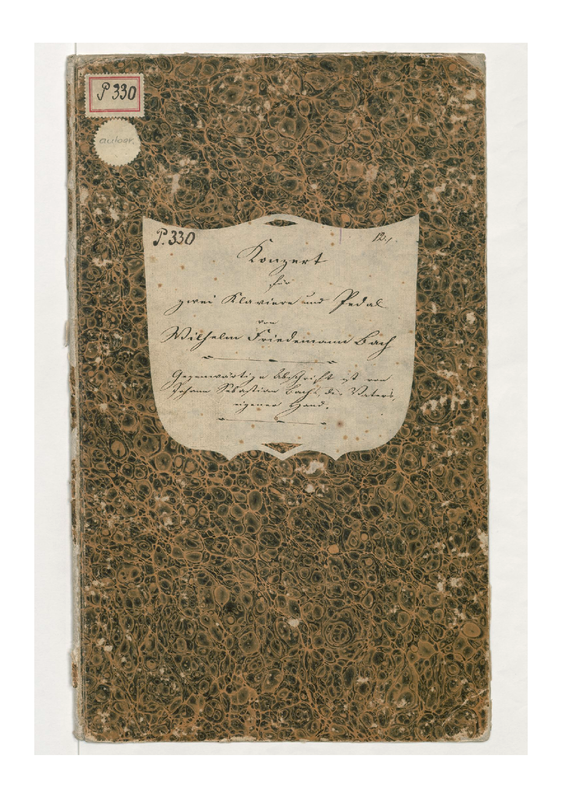 P 330
autogr.
P. 330
12.,
Konzert
für
zwei Klaviere und Pedal
von
Wilhelm Friedemann Bach
Gegenwärtige Abschrift ist von
Johann Sebastian Bachs, des Vaters,
eigener Hand.